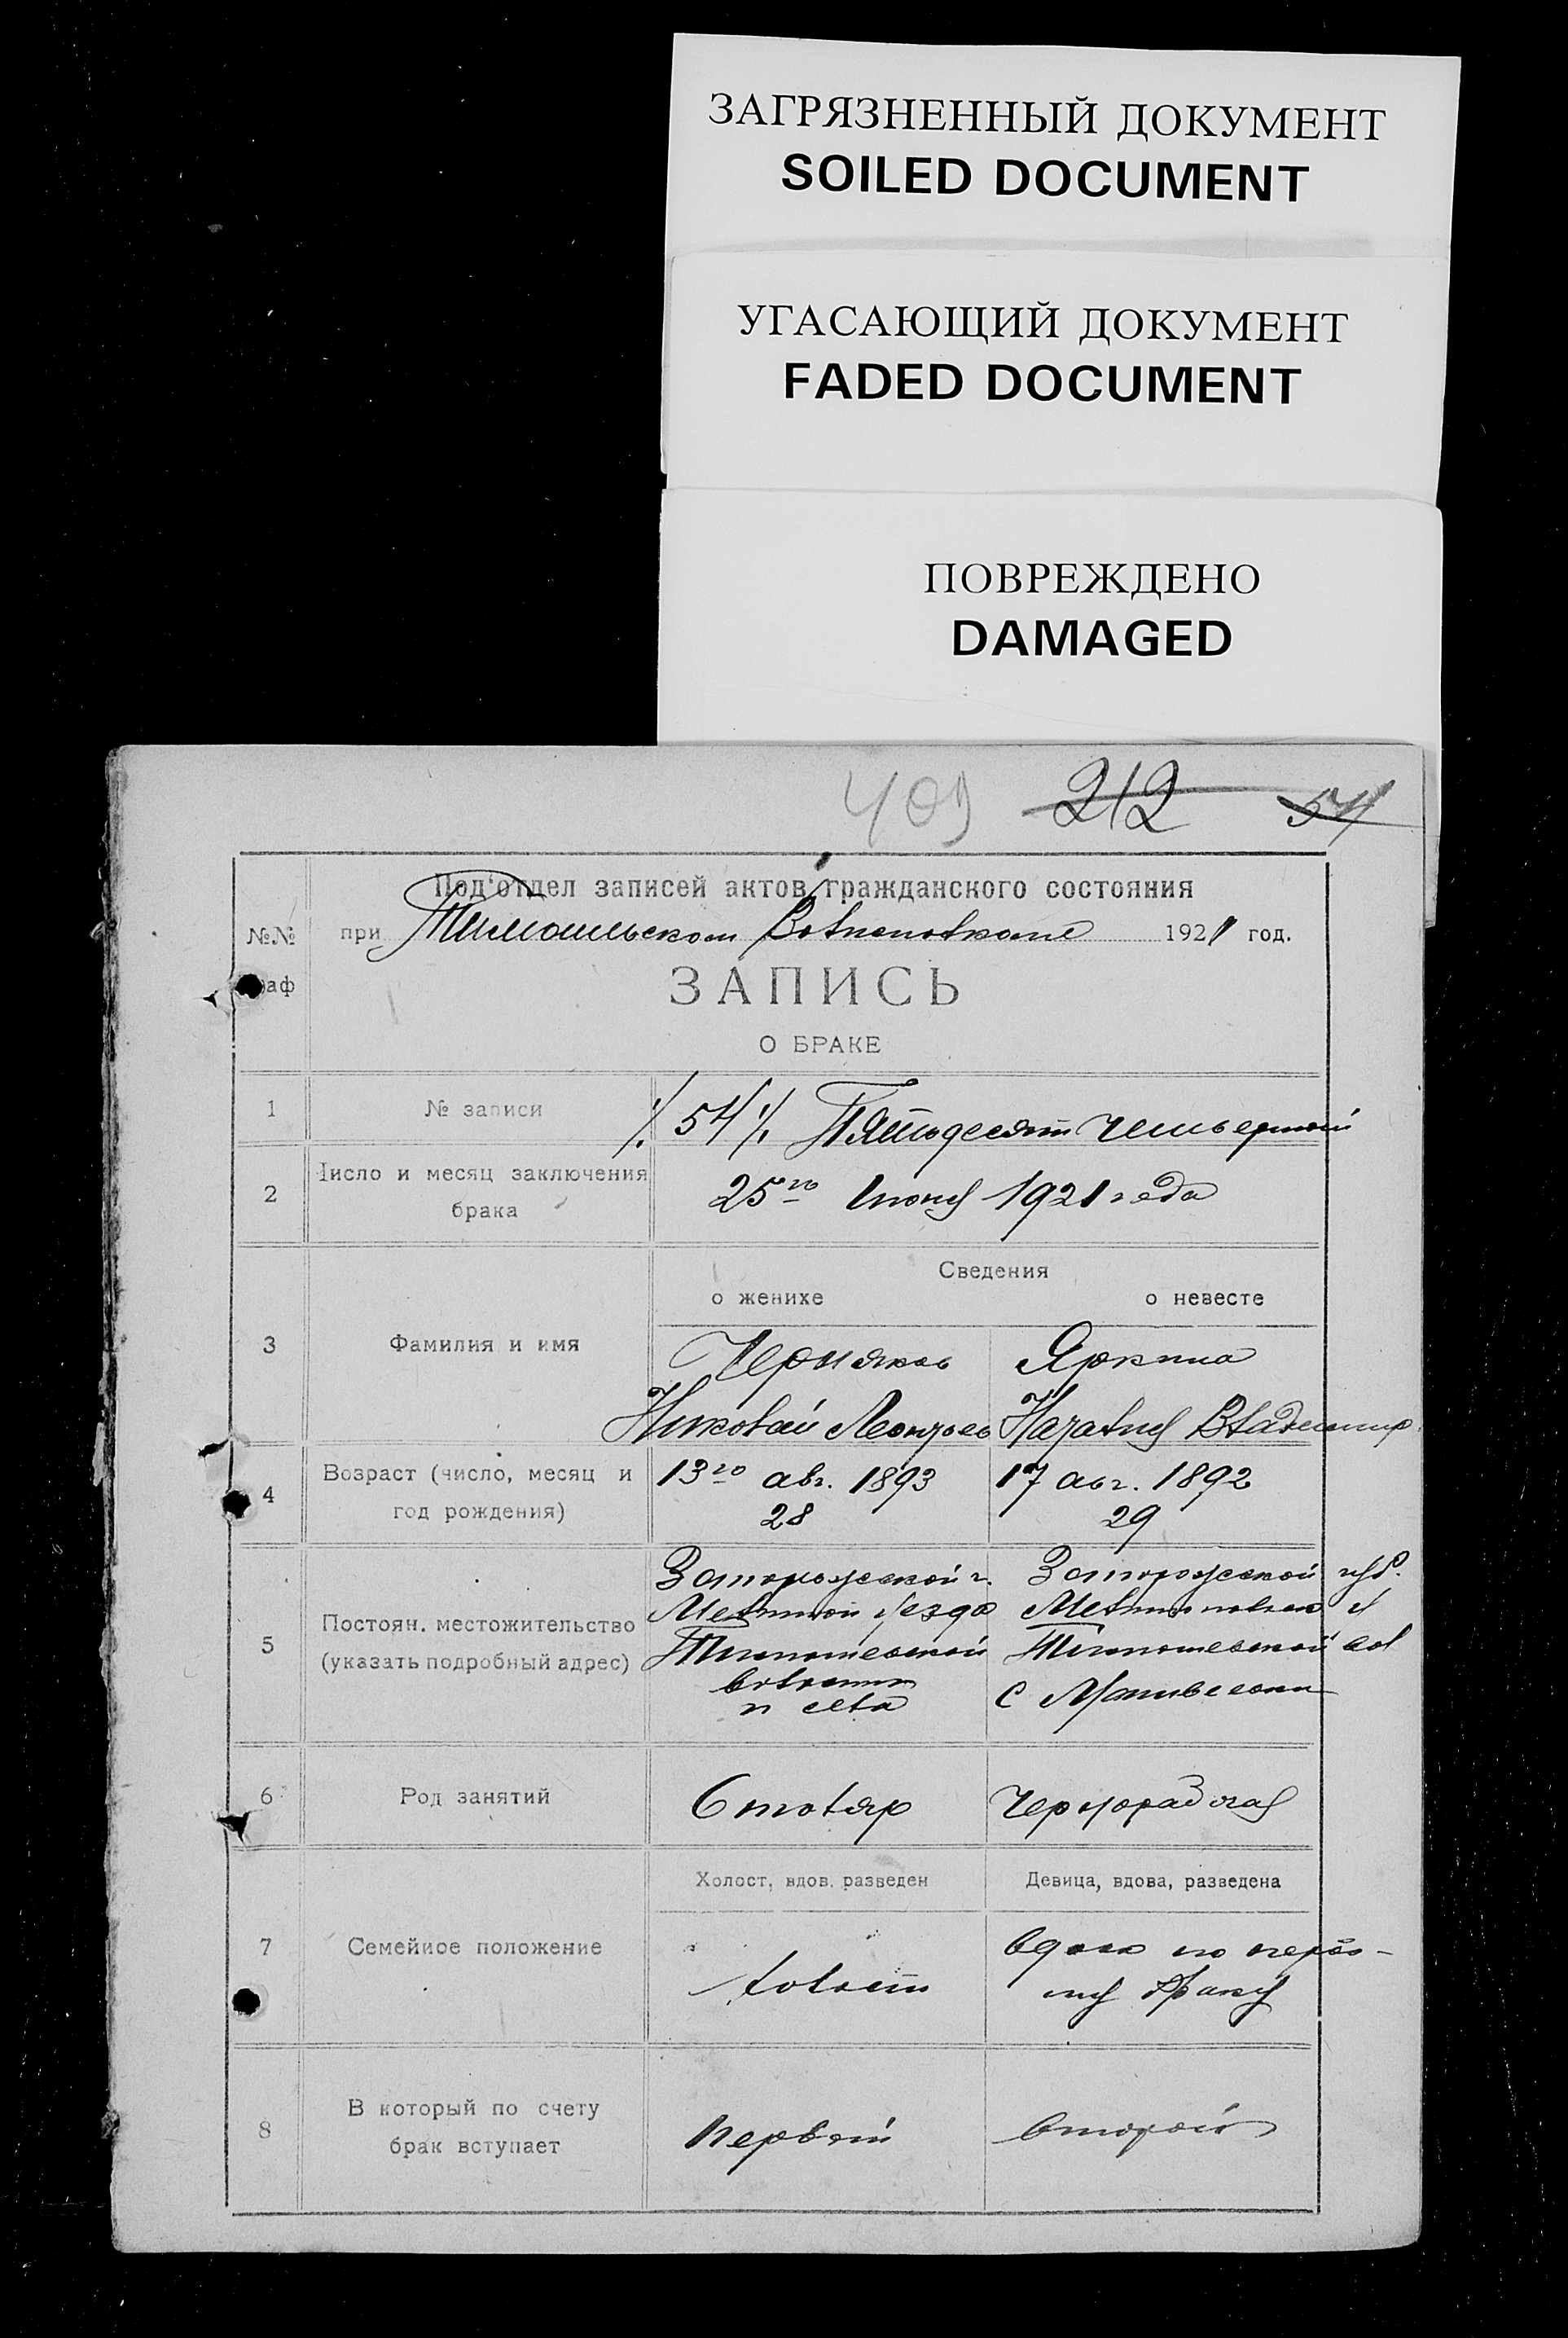 ЗАГРЯЗНЕННЫЙ ДОКУМЕНТ
SOILED DOCUMENT
УГАСАЮЩИЙ ДОКУМЕНТ
FADED DOCUMENT
ПОВРЕЖДЕНО
DAMAGED
409 212 54
Под'отдел записей актов гражданского состояния
№№ при Волисполкоме 1921 год.
аф
ЗАПИСЬ
О БРАКЕ
1 № записи 54 Пятьдесят четвертый
2 Число и месяц заключения брака 25го Июня 1921 года
Сведения
о женихе о невесте
3 Фамилия и имя Черняков Яркина
Николай Леонтьев Наталия Владимир.
4 Возраст (число, месяц и год рождения) 13го авг. 1893 17 авг. 1892
28 29
5 Постоян. местожительство (указать подробный адрес)
Запорожской г. Запорожской губ.
Мелитоп уезда Мелитопольск у
Тимошевской Тимошевской вол
волости
и села с
6 Род занятий Столяр Чернорабочая
Холост, вдов. разведен Девица, вдова, разведена
7 Семейное положение холост вдова по перво-
му браку
8 В который по счету брак вступает первый второй